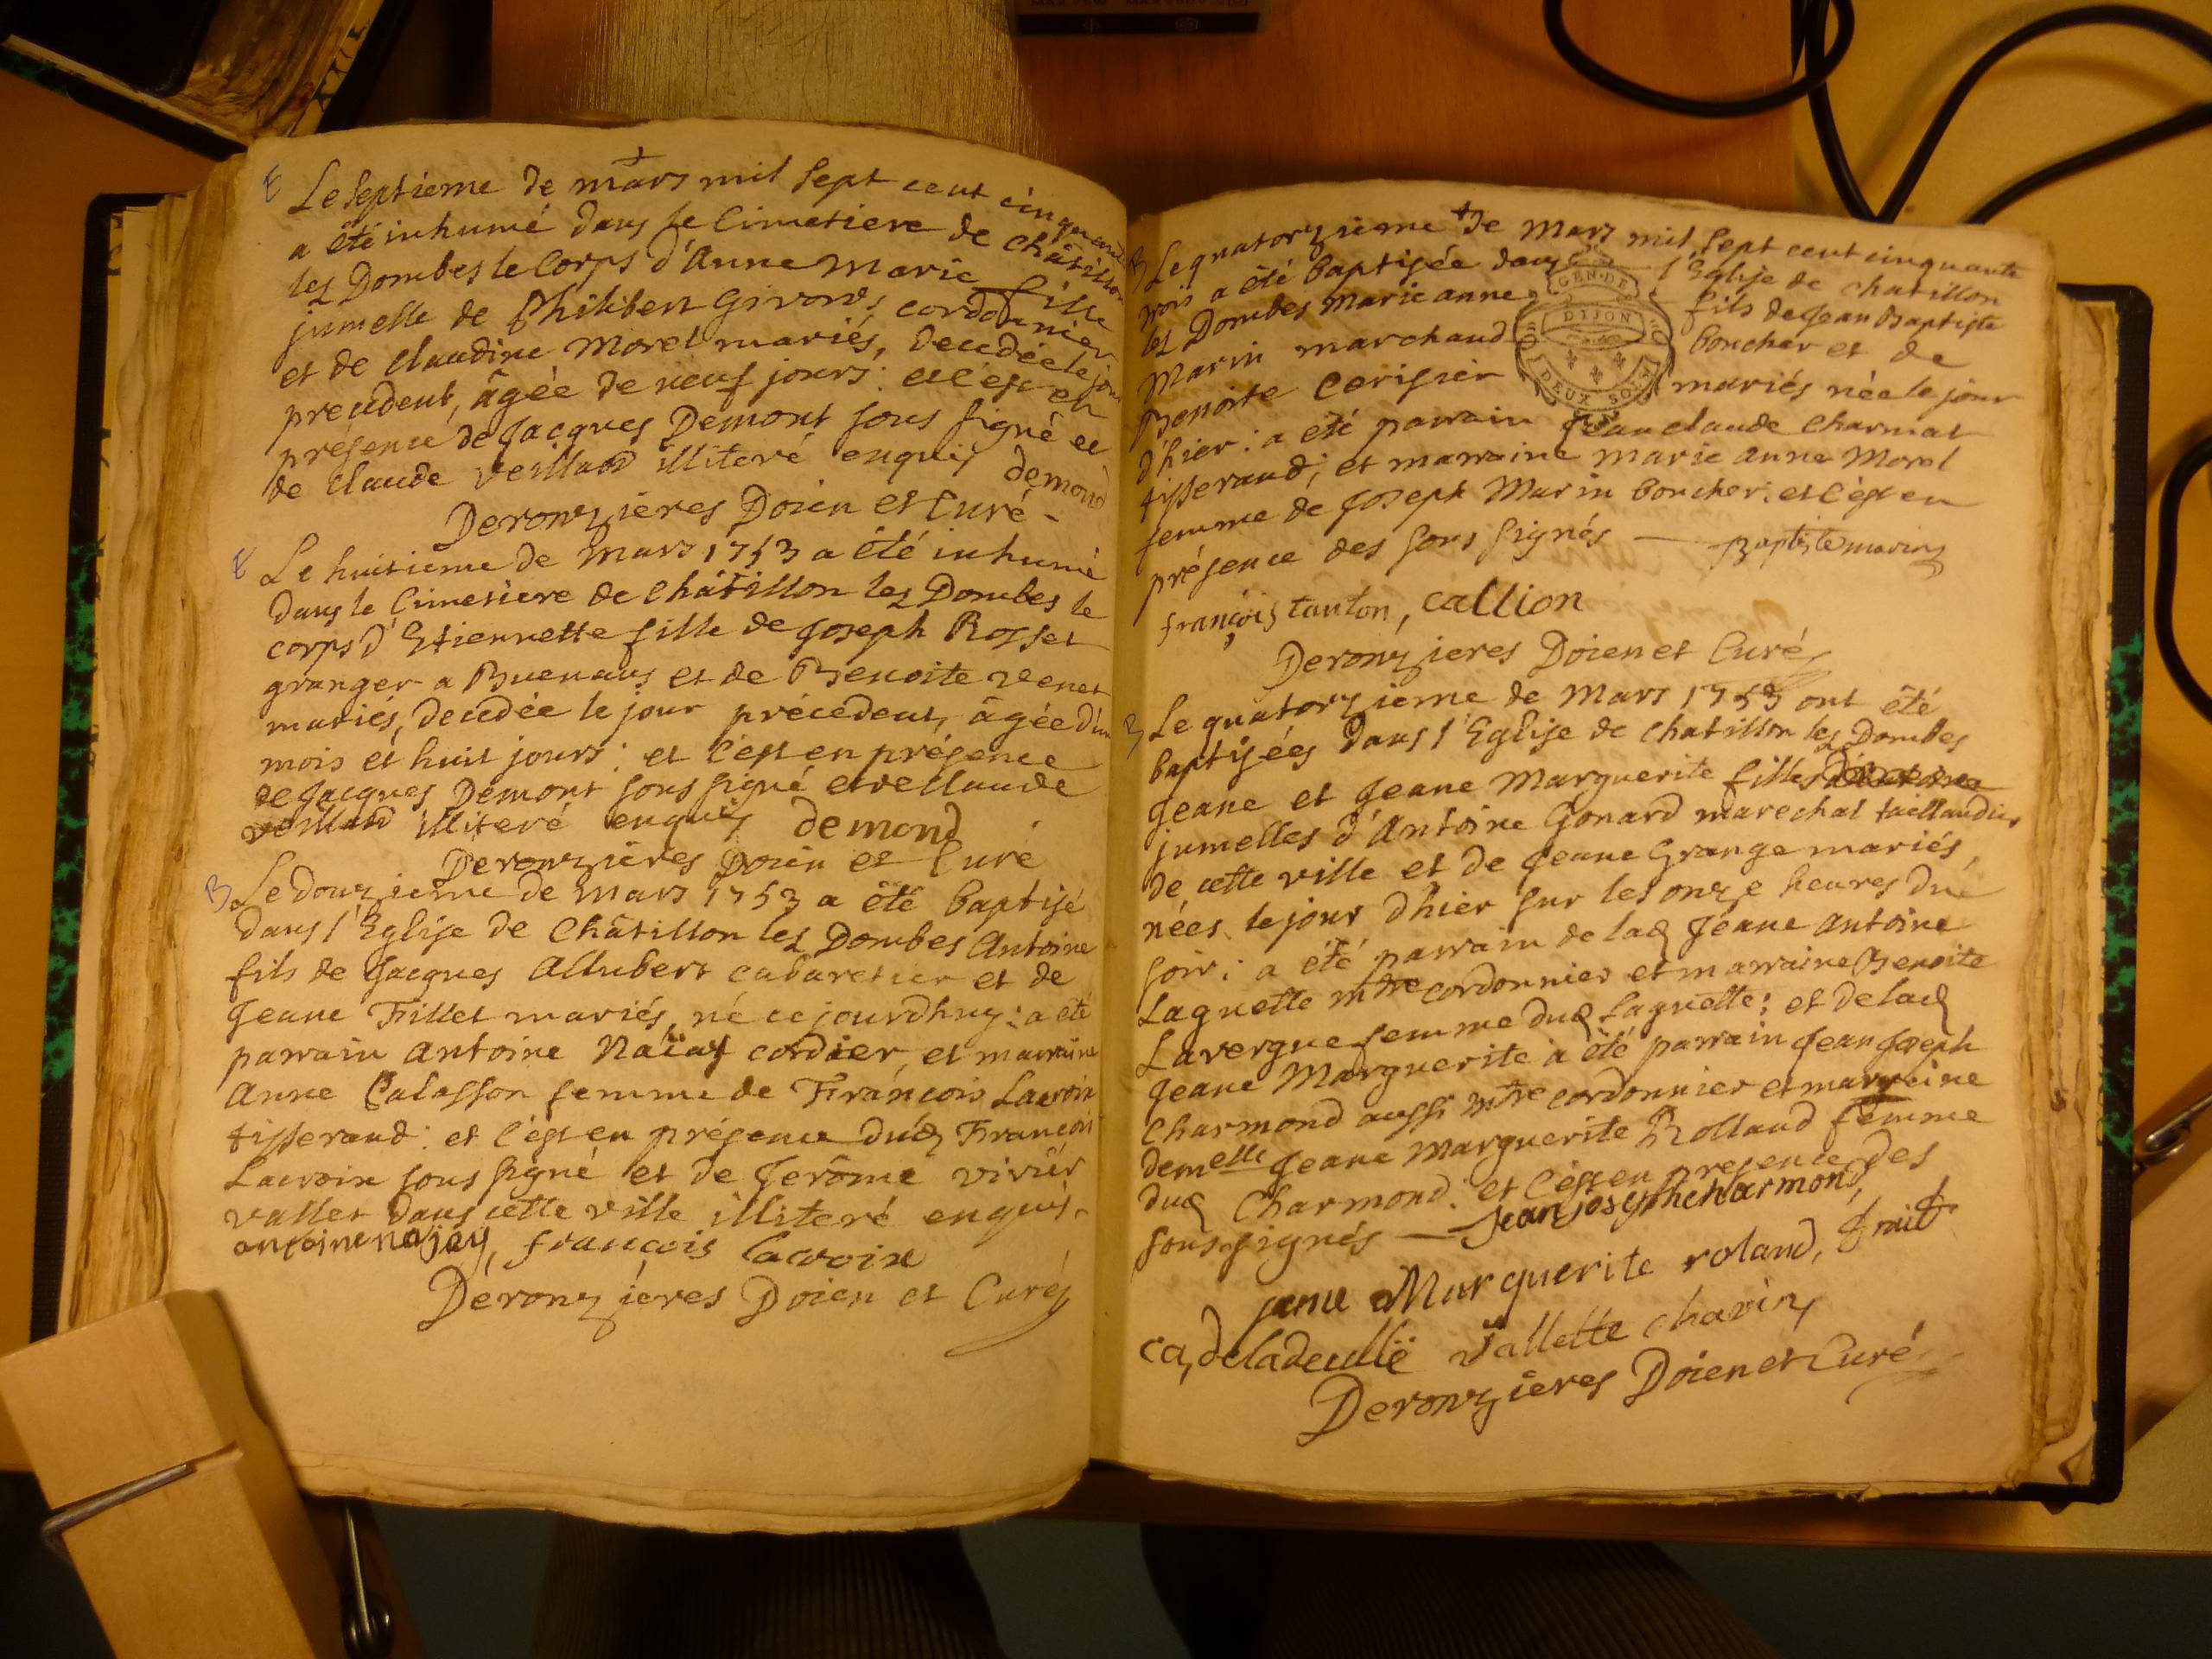 E Le septieme de mars mil sept cent cinquante
a été inhumé dans le Cimetiere de Châtillon
les Dombes le Corps d'Anne Marie fille
jumelle de Philibert Givord cordonnier
et de Claudine Morel mariés, decedée le jour
precedent, âgée de neuf jours: et c'est en
présence de Jacques Demont sous signé et
de Claude veillard illiteré enquis demond
Derouzieres Doien et Curé
E Le huitieme de Mars 1753 a été inhumé
dans le Cimetiere de Châtillon les Dombes le
corps d'Etiennette fille de Joseph Rosset
granger a Buenans et de Benoite venet
mariés, decedée le jour précédent, âgée d'un
mois et huit jours: et c'est en présence
de Jacques Demont sous signé et de Claude
veillard illiteré enquis demond
Derouzieres Doien et Curé
B Le douzieme de Mars 1753 a été baptisé
dans l'Eglise de Châtillon les Dombes Antoine
fils de Jacques Allubert cabaretier et de
Jeane Fillet mariés, né ce jourdhuy: a été
parrain Antoine cordier, et marraine
Anne Calasson femme de François Lacroix
tisserand: et c'est en présence dud François
Lacroix sous signé et de Jerôme vivier
vallet dans cette ville illiteré enquis.
antoine najay, françois lacroix
Derouzieres Doien et Curé
B Le quatorzieme de Mars mil sept cent cinquante
trois a été baptisée dans l'Eglise de Chatillon
les Dombes Marie anne fils de Jean Baptiste
Marin marchand boucher et de
Benoite Cerisier mariés née le jour
d'hier: a été parrain Jean claude Charmat
tisserand; et marraine marie Anne Morel
femme de Joseph Marin boucher. et c'est en
présence des sous signés Baptiste marin
françois tanton, callion
Derouzieres Doien et Curé
B Le quatorzieme de Mars 1753 ont été
baptisées dans l'Eglise de Chatillon les Dombes
Jeane et Jeane Marguerite filles
jumelles d'Antoine Gonard marechal taillandier
de cette ville et de Jeane Grange mariés,
nées le jour d'hier sur les onze heures du
soir: a été parrain de lad Jeane Antoine
Laguette mtre cordonnier et marraine Benoite
Lavergne femme dud Laguette; et de lad
Jeane Marguerite a été parrain Jean Joseph
Charmond aussi mtre cordonnier et marraine
demelle Jeane Marguerite Rolland femme
dud Charmond: et c'est en presence des
sous signés Jean joseph charmond,
jane Marguerite roland,
vallette chavin
Derouzieres Doien et Curé
GEN. DE
DIJON
DEUX SOLS